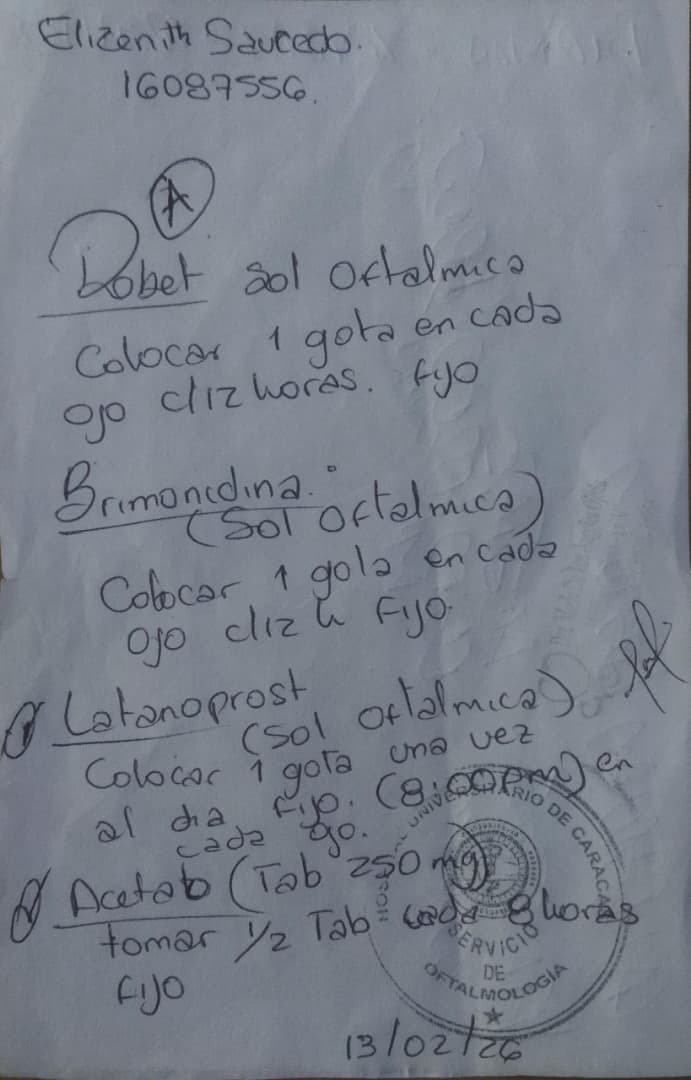 Elizenith Saucedo.
16087556.
A
Dobet Sol Oftalmica
Colocar 1 gota en cada
ojo c/12 horas. fijo
Brimonidina.
(Sol Oftalmica)
Colocar 1 gota en cada
ojo c/12 h Fijo.
Latanoprost
(Sol Oftalmica)
Colocar 1 gota una vez
al dia Fijo. (8:00pm) en
cada ojo.
Acetab (Tab 250 mg)
tomar 1/2 Tab cada 8 horas
FIJO
HOSPITAL UNIVERSITARIO DE CARACAS
SERVICIO
DE
OFTALMOLOGIA
13/02/26